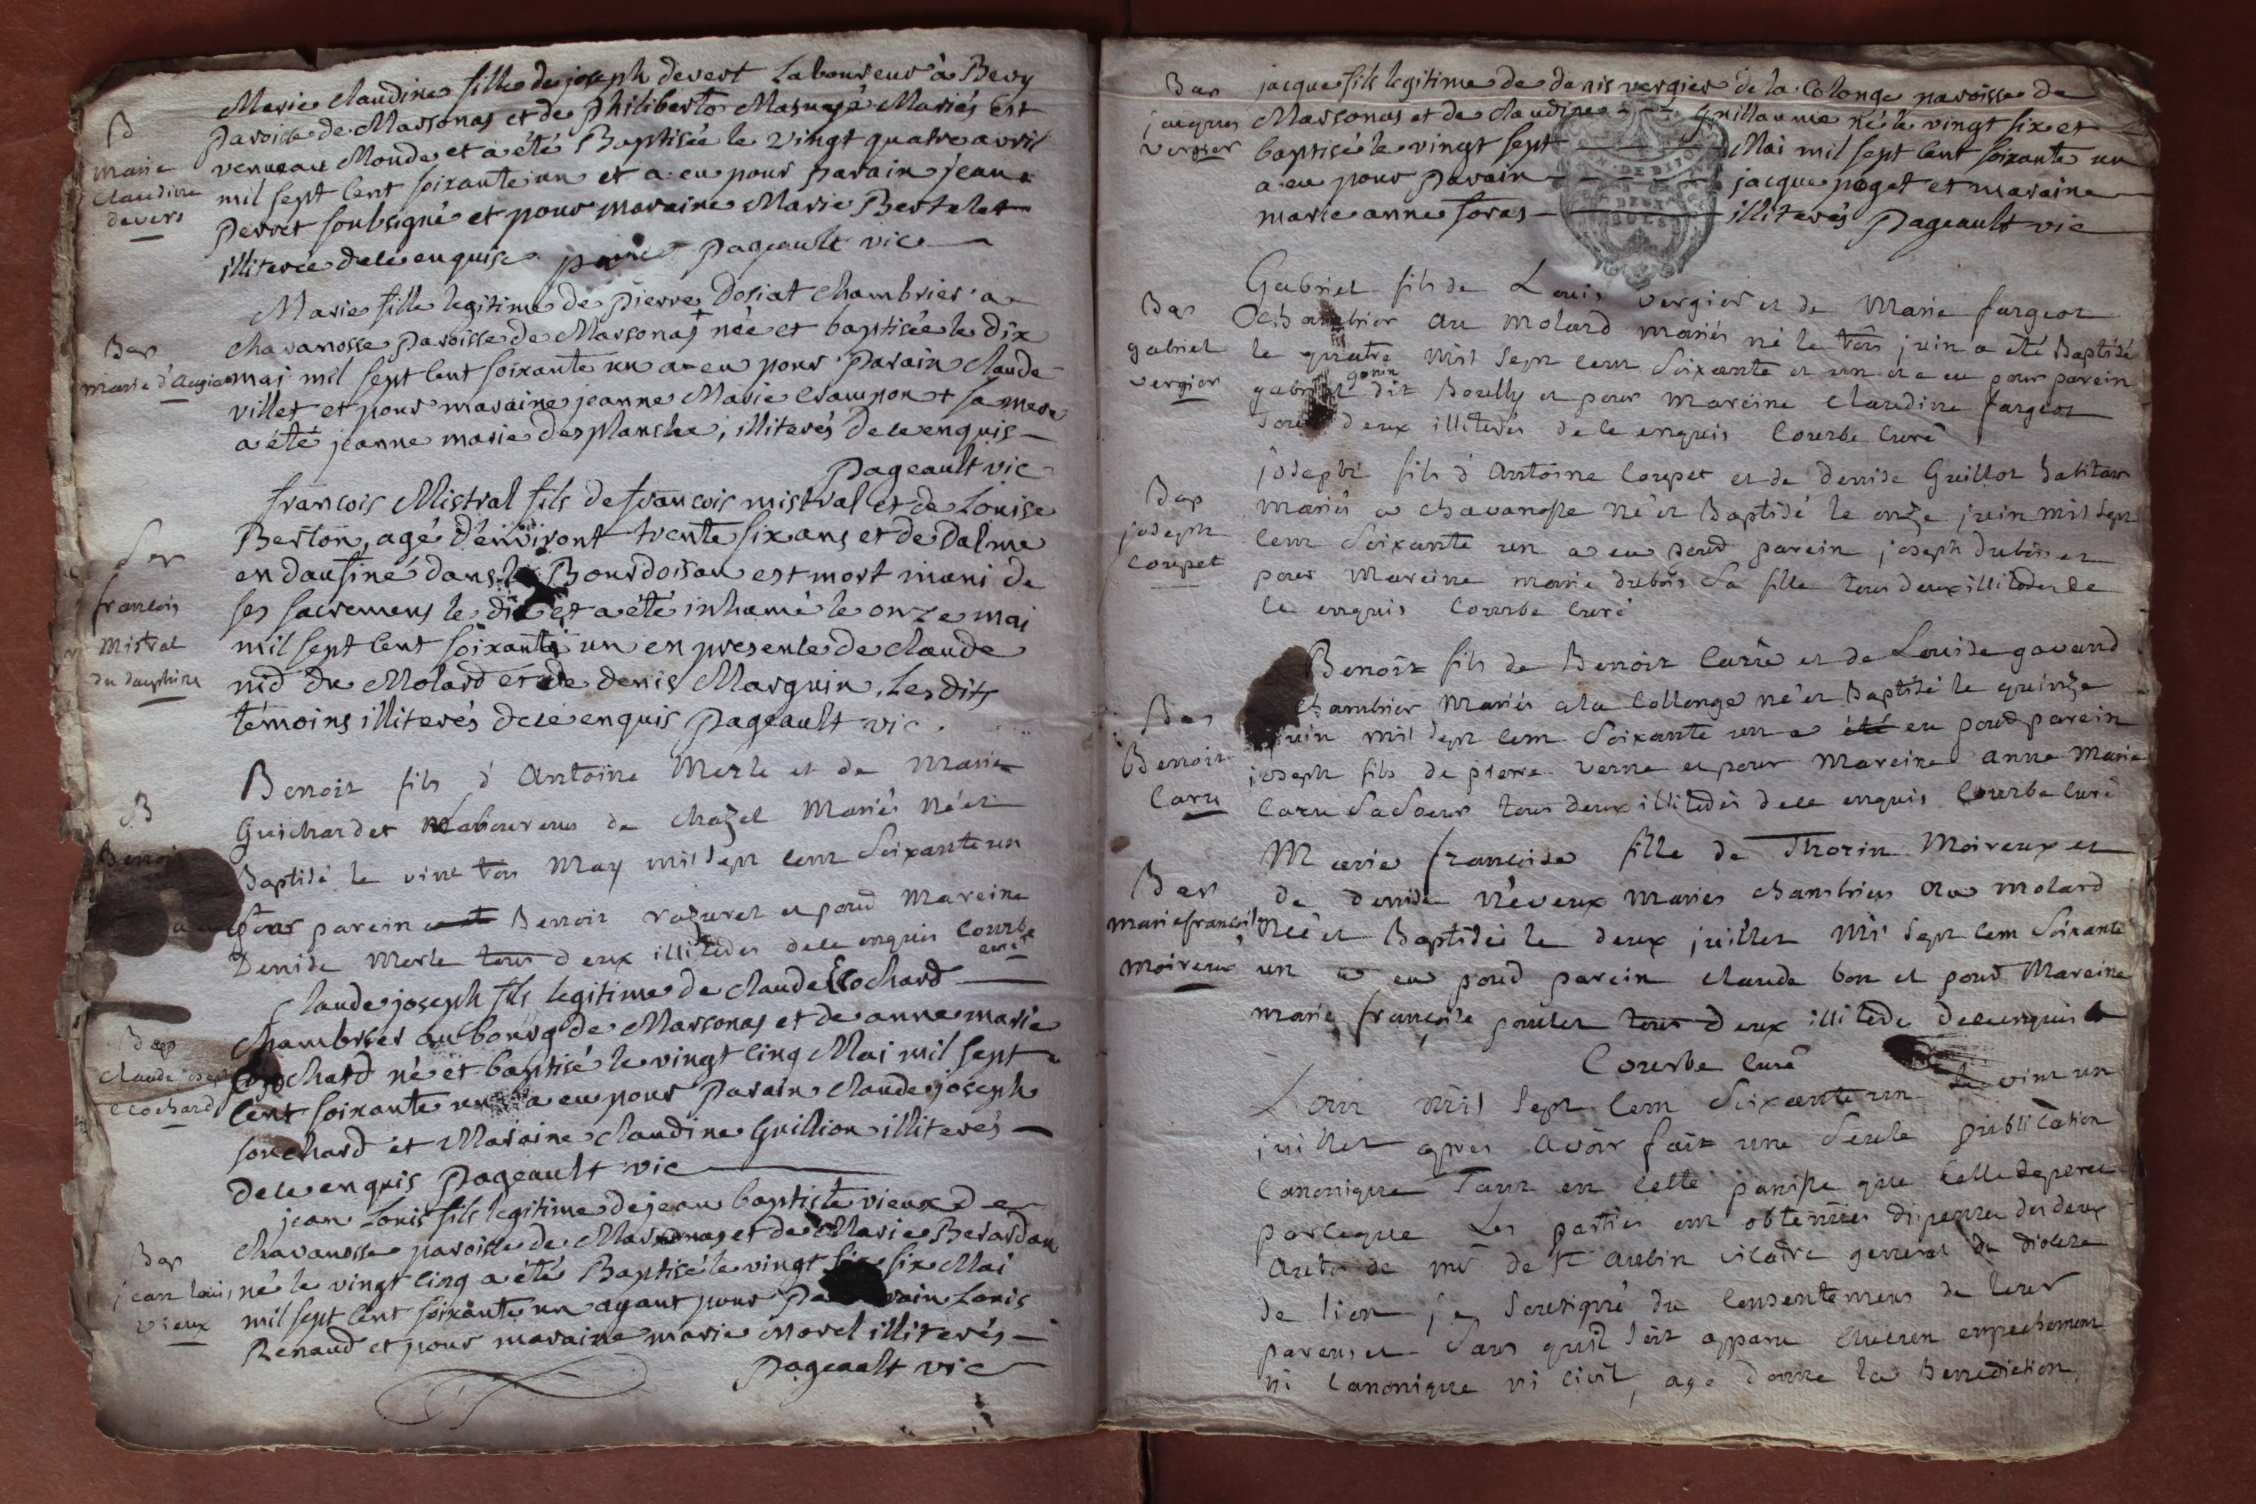 B
marie
Claudine
devers
Marie Claudine fille de joseph devert Laboureur à Bevy
paroisse de Marsonas et de philiberte Mariés Est
venue au Monde et a été Baptisée le vingt quatre avril
mil sept Cent soixante un et a eu pour parain jean
perret soubsigné et pour maraine Marie Bertelet
illiterée de ce enquise pageault vic
Bap
marie
Marie fille legitime de pierre dosiat Chambrier a
chavanosse paroisse de Marsonas née et baptisée le dix
mai mil sept Cent soixante un a eu pour parain Claude
villet et pour maraine jeanne Marie + sa mere
a été jeanne marie desplanche, illiterés de ce enquis
pageault vic
françois
Mistral
du dauphine
françois Mistral fils de françois mistral et de Louise
Berton, agé d'environt trente six ans et de
en daufiné dans le est mort muni de
ses sacremens le dix et a été inhumé le onze mai
mil sept Cent soixante un en presence de Claude
nid du Molard et de denis Marguin, Les dits
témoins illiterés de ce enquis pageault vic
B
Benoit
Benoit fils d'Antoine Merle et de Marie
Guichardet Laboureurs de Chazel Mariés né et
Baptisé le vint trois May mil sept cent soixante un
a eu pour parein Benoit razuret et pour Mareine
Denise Merle tous deux illiteres de ce enquis Courbe
curé
Bap
Claude joseph
cochard
Claude joseph fils legitime de Claude Cochard
Chambrier au bourg de Marsonas et de anne marie
né et baptisé le vingt Cinq Mai mil sept
Cent soixante un a eu pour parain Claude joseph
et Maraine Claudine Guillion illiterés
de ce enquis pageault vic
Bap
jean louis
vieux
jean Louis fils legitime de jean baptiste vieux de
chavanosse paroisse de Marsonas et de Marie Berardan
né le vingt Cinq a été Baptisé le vingt six Mai
mil sept Cent soixante un ayant pour parain Louis
Renaud et pour maraine marie morel illiterés
pageault vic
Bap
jacques
vergier
jacque fils legitime de denis vergier de la Colonge paroisse de
Marsonas et de Claudine Guillaume né le vingt six et
baptisé le vingt sept Mai mil sept Cent soixante un
a eu pour parain jacque poget et maraine
marie anne foras illiterés pageault vic
Bap
gabriel
vergier
Gabriel fils de Louis vergier et de Marie fargeot
Chambrier au Molard mariés né le trois juin a été Baptisé
le quatre mil sept cent soixante et un et a eu pour parein
gonin
gabriel dit Boully et pour mareine Claudine fargeot
tous deux illiterés de ce enquis Courbe Curé
Bap
joseph
Coupet
joseph fils d'Antoine Coupet et de Denise Guillot habitans
mariés a chavanosse né et Baptisé le onze juin mil sept
cent soixante un a eu pour parein joseph dubois et
pour Mareine marie dubois sa fille tous deux illiteres de
ce enquis Courbe Curé
Bap
Benoit
Carru
Benoit fils de Benoit Carru et de Louise gavand
Chambrier Mariés a la Collonge né et Baptisé le quinze
juin mil sept cent soixante un a été eu pour parein
joseph fils de pierre verne et pour mareine anne Marie
Carru sa soeur tous deux illiterés de ce enquis Courbe Curé
Bap
marie françoise
moireux
Marie françoise fille de Thorin Moireux et
de denise néveux mariés chambriers au molard
Née et Baptisée le deux juillet mil sept cent soixante
un a eu pour parein Claude bon et pour Mareine
marie françoise poulet tous deux illiteré de ce enquis
Courbe Curé
L'an mil sept cent soixante un le vint un
juillet apres avoir fait une seule publication
Canonique tant en cette paroisse que celle de
parceque les parties ont obtenues dispence des deux
autres de mr de st aubin vicaire general du diocese
de lion je soussigné du consentement de leur
parens et sans qu'il soit apparu aucun empechement
ni Canonique ni civil, ay donné la Benediction